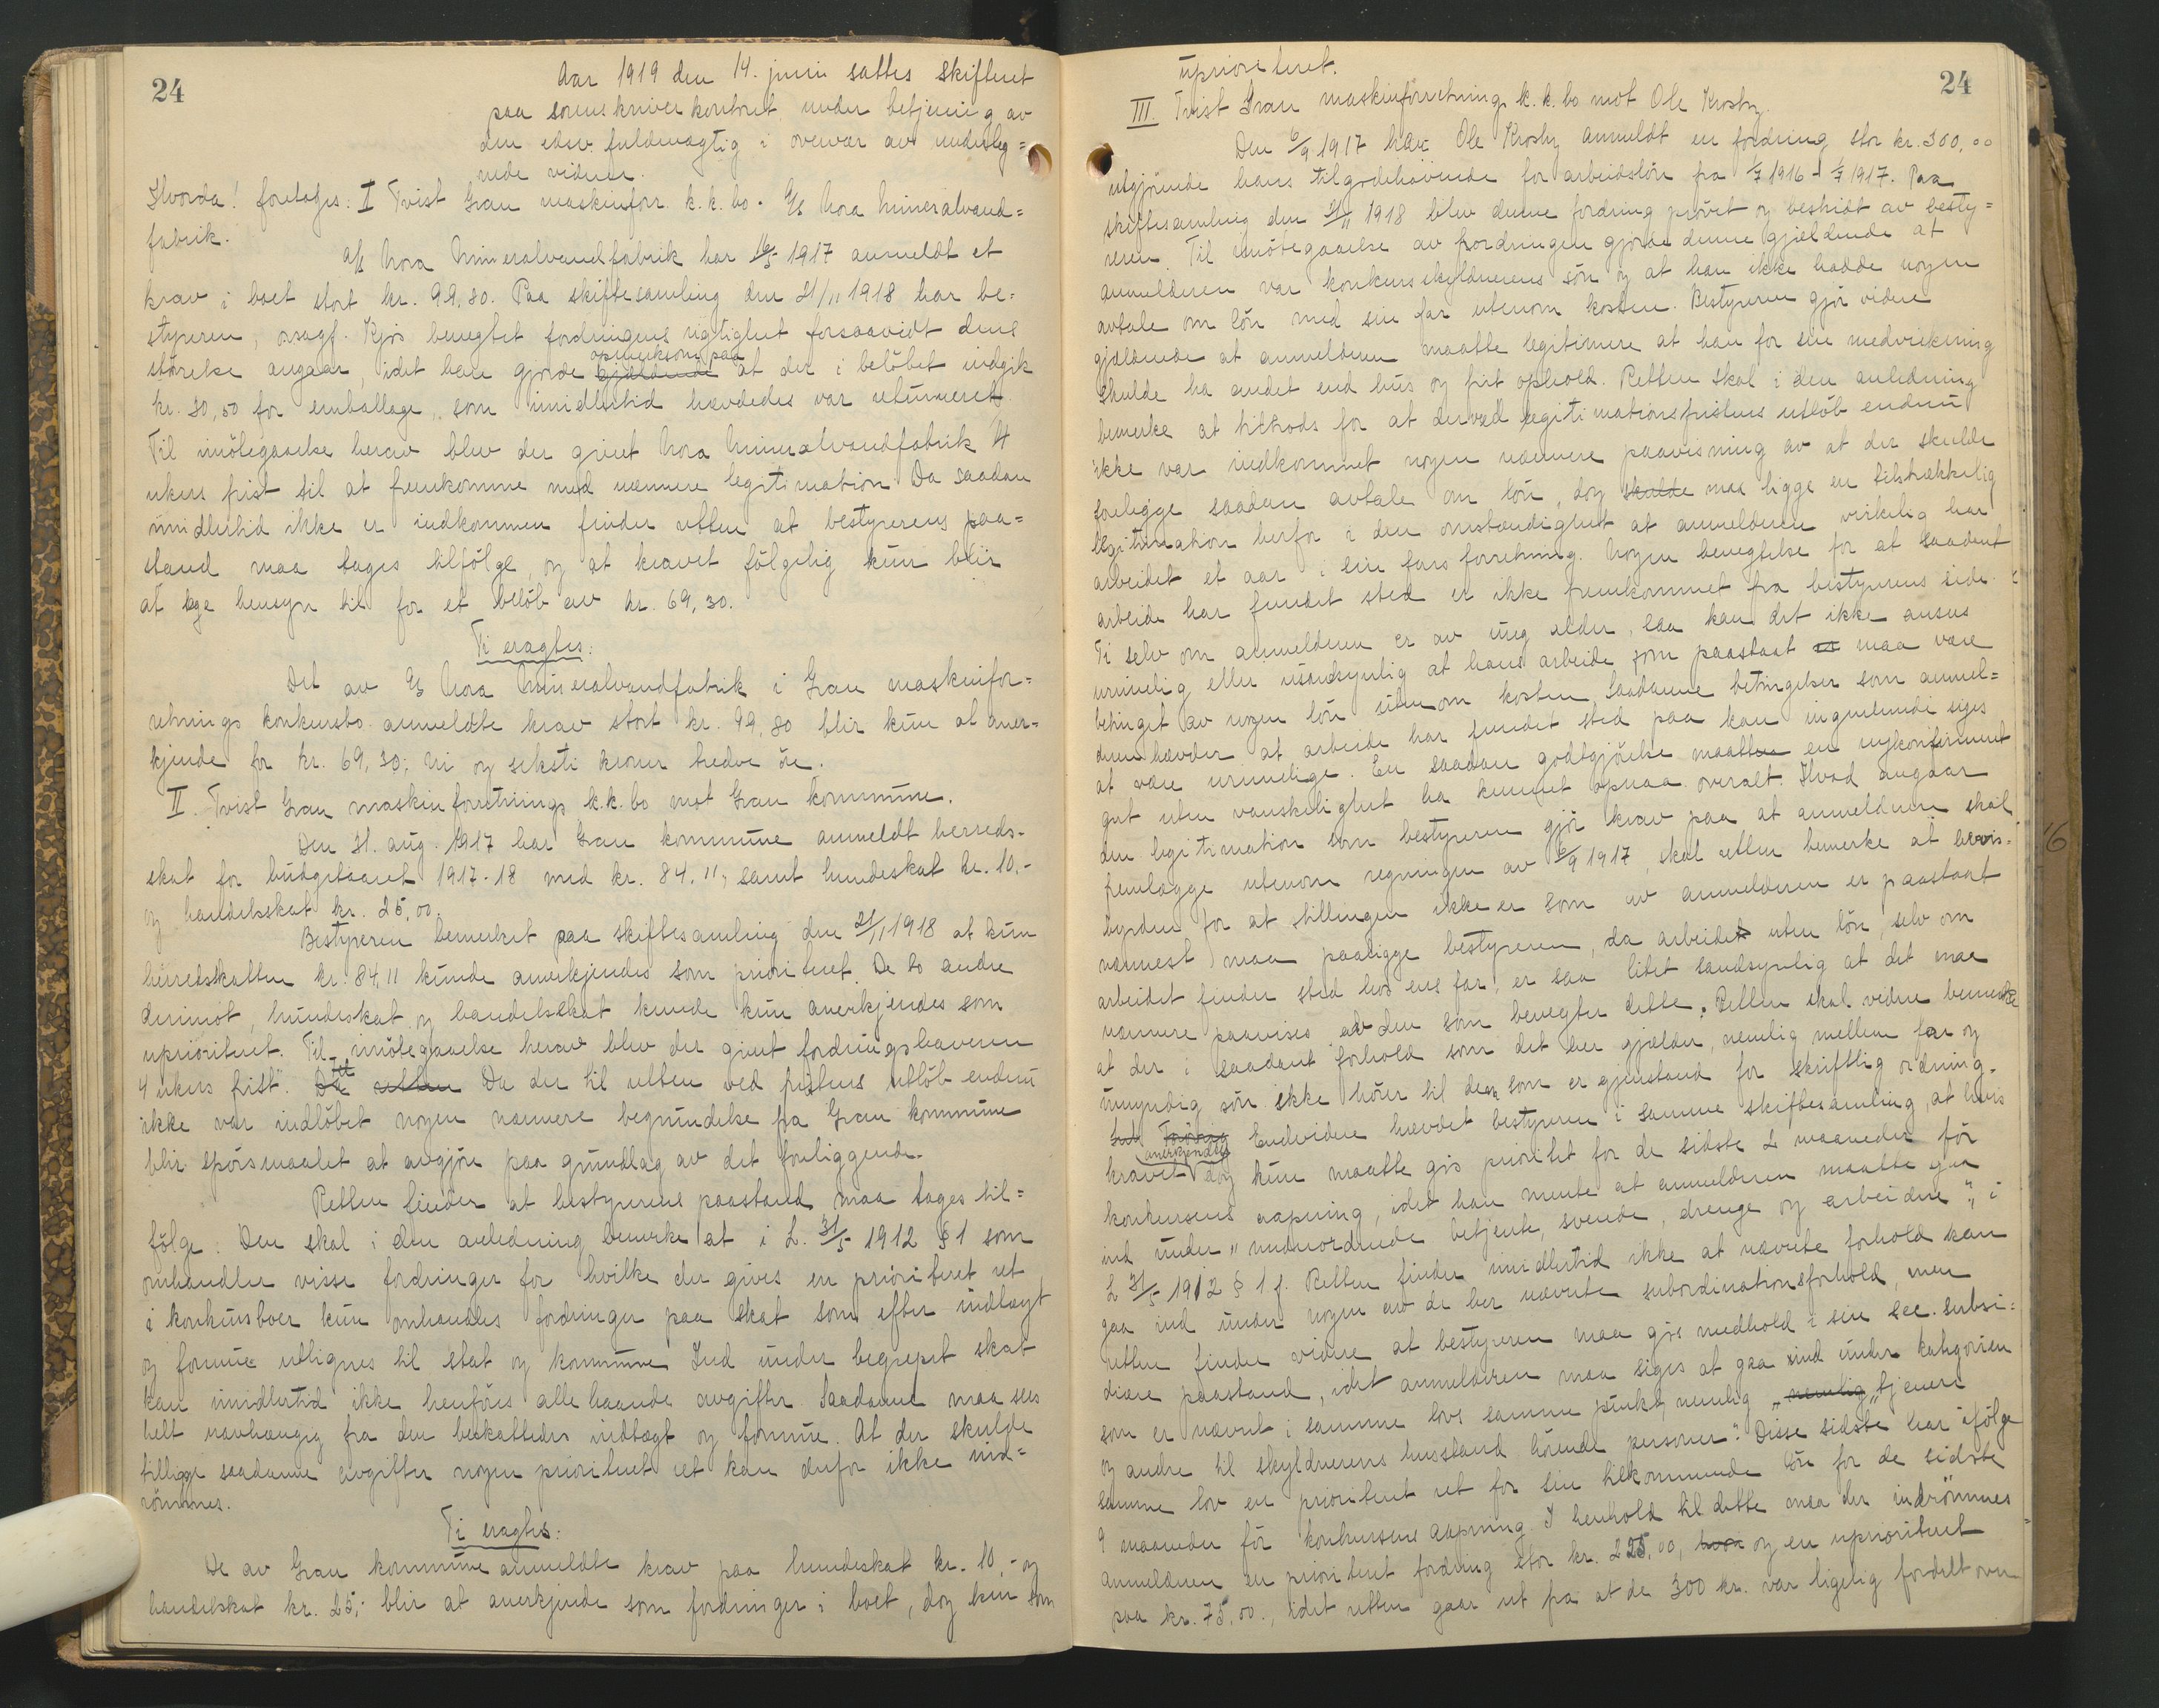 24
Aar 1919 den 14. juni sattes skifteret
paa sorenskriverkontoret under betjening av
den edsv. fuldmægtig i overvær av underteg=
nede vidner.
Hvorda! foretoges: I Tvist Gran maskinforr. k.k. bo. A/s Nora Mineralvand=
fabrik.
A/s Nora Mineralvandfabrik har 16/5 1917 anmeldt et
krav i boet stort kr. 99,80. Paa skiftesamling den 21/11 1918 har be=
styreren, orsagf. Kjøs benegtet fordringens rigtighet forsaavidt dens
størelse angaar, idet han gjorde gjældende opmerksom paa at der i beløbet indgik
kr. 30,50 for emballage, som imidlertid hævdedes var returneret.
Til imøtegaaelse herav blev der givet Nora Mineralvandfabrik 4
ukers frist til at fremkomme med nærmere legitimation. Da saadan
imidlertid ikke er indkommen finder retten at bestyrerens paa=
stand maa tages tilfølge, og at kravet følgelig kun blir
at tage hensyn til for et beløb av kr. 69,30.
Ti eragtes:
Det av A/s Nora Mineralvandfabrik i Gran maskinfor=
retnings konkursbo anmeldte krav stort kr. 99,80 blir kun at aner=
kjende for kr. 69,30; ni og seksti kroner tredve øre.
II. Tvist Gran maskinforretnings k.k. bo mot Gran kommune.
Den 31. aug. 1917 har Gran kommune anmeldt herreds-
skat for budgetaaret 1917-18 med kr. 84.11, samt hundeskat kr. 10,-
og handelsskat kr. 25,00.
Bestyreren bemerket paa skiftesamling den 21/11 1918 at kun
herredsskatten kr. 84,11 kunde anerkjendes som prioriteret. De to andre
derimot, hundeskat og handelsskat kunde kun anerkjendes som
uprioritert. Til imøtegaaelse herav blev der givet fordringshaveren
4 ukers frist. Da retten Da der til retten ved fristens utløb endnu
ikke var indløbet nogen nærmere begrundelse fra Gran kommune
blir spørsmaalet at avgjøre paa grundlag av det foreliggende.
Retten finder at bestyrerens paastand maa tages til=
følge. Den skal i den anledning bemerke at i L. 31/5 1912 § 1 som
omhandler visse fordringer for hvilke der gives en prioriteret ret
i konkursboer kun omhandles fordringer paa skat som efter indtægt
og formue utlignes til stat og kommune. Ind under begrepet skat
kan imidlertid ikke henføres alle haande avgifter. Saadanne maa sees
helt uavhængig fra den beskattedes indtægt og formue. At der skulde
tilligge saadanne avgifter nogen prioriteret ret kan derfor ikke ind=
rømmes.
Ti eragtes:
De av Gran kommune anmeldte krav paa hundeskat kr. 10,- og
handelskat kr. 25,- blir at anerkjende som fordringer i boet, dog kun som
24
uprioriteret.
III. Tvist Gran maskinforretnings k.k. bo mot Ole Krosby.
Den 6/9 1917 har Ole Krosby anmeldt en fordring stor kr. 300,00
utgjørende hans tilgodehavende for arbeidsløn fra 1/7 1916 - 1/7 1917. Paa
skiftesamling den 21/11 1918 blev denne fordring prøvet og bestridt av besty=
reren. Til imøtegaaelse av fordringen gjorde denne gjældende at
anmelderen var konkursskyldnerens søn og at han ikke hadde nogen
avtale om løn med sin far utenom kosten. Bestyreren gjør videre
gjældende at anmelderen maatte legitimere at han for sin medvirkning
skulde ha andet end hus og frit ophold. Retten skal i den anledning
bemerke at tiltrods for at der ved legitimationsfristens utløb endnu
ikke var indkommet nogen nærmere paavisning av at der skulde
foreligge saadan avtale om løn, dog skulde maa ligge en tilstrækkelig
legitimation herfor i den omstændighet at anmelderen virkelig har
arbeidet et aar i sin fars forretning. Nogen benegtelse for at saadant
arbeide har fundet sted er ikke fremkommet fra bestyrerens side.
Ti selv om anmelderen er av ung alder, saa kan det ikke ansees
urimelig eller usandsynlig at hans arbeide som paastaat maa være
betinget av nogen løn utenom kosten. Saadanne betingelser som anmel=
deren hævder at arbeide har fundet sted paa kan ingenlunde siges
at være urimelige. En saadan godtgjørelse maatte en nykonfirmeret
gut uten vanskelighet ha kunnet opnaa overalt. Hvad angaar
den legitimation som bestyreren gjør krav paa at anmelderen skal
fremlægge utenom regningen av 6/9 1917, skal retten bemerke at bevis=
byrden for at stillingen ikke er som av anmelderen er paastaat
nærmest maa paaligge bestyreren, da arbeide uten løn, selv om
arbeidet finder sted hos ens far, er saa litet sandsynlig at det maa
nærmere paavises av den som benegter dette. Retten skal videre bemerke
at der i saadant forhold som det her gjælder, nemlig mellem far og
umyndig søn ikke hører til dem som er gjenstand for skriftlig ordning.
Endvidere hævdet bestyreren i samme skiftesamling, at hvis
kravet anerkendtes dog kun maatte gis prioritet for de sidste 2 maaneder før
konkursens aapning, idet han mente at anmelderen maatte gaa
ind under "underordnede betjente, svende, drenge og arbeidere", i
L 31/5 1912 § 1 f. Retten finder imidlertid ikke at nævnte forhold kan
gaa ind under nogen av de her nævnte subordinationsforhold, men
retten finder videre at bestyreren maa gis medhold i sin sec. subsi=
diære paastand, idet anmelderen maa siges at gaa ind under kategorien
som er nævnt i samme lovs samme punkt, nemlig "nemlig "tjenere
og andre til skyldnerens husstand hørende personer". Disse sidste har ifølge
samme lov en prioriteret ret for sin tilkommende løn for de sidste
9 maaneder før konkursens aapning. I henhold til dette maa der indrømmes
anmelderen en prioriteret fordring stor kr. 225,00, hvor og en uprioriteret
paa kr. 75,00, idet retten gaar ut fra at de 300 kr. var ligelig fordelt over